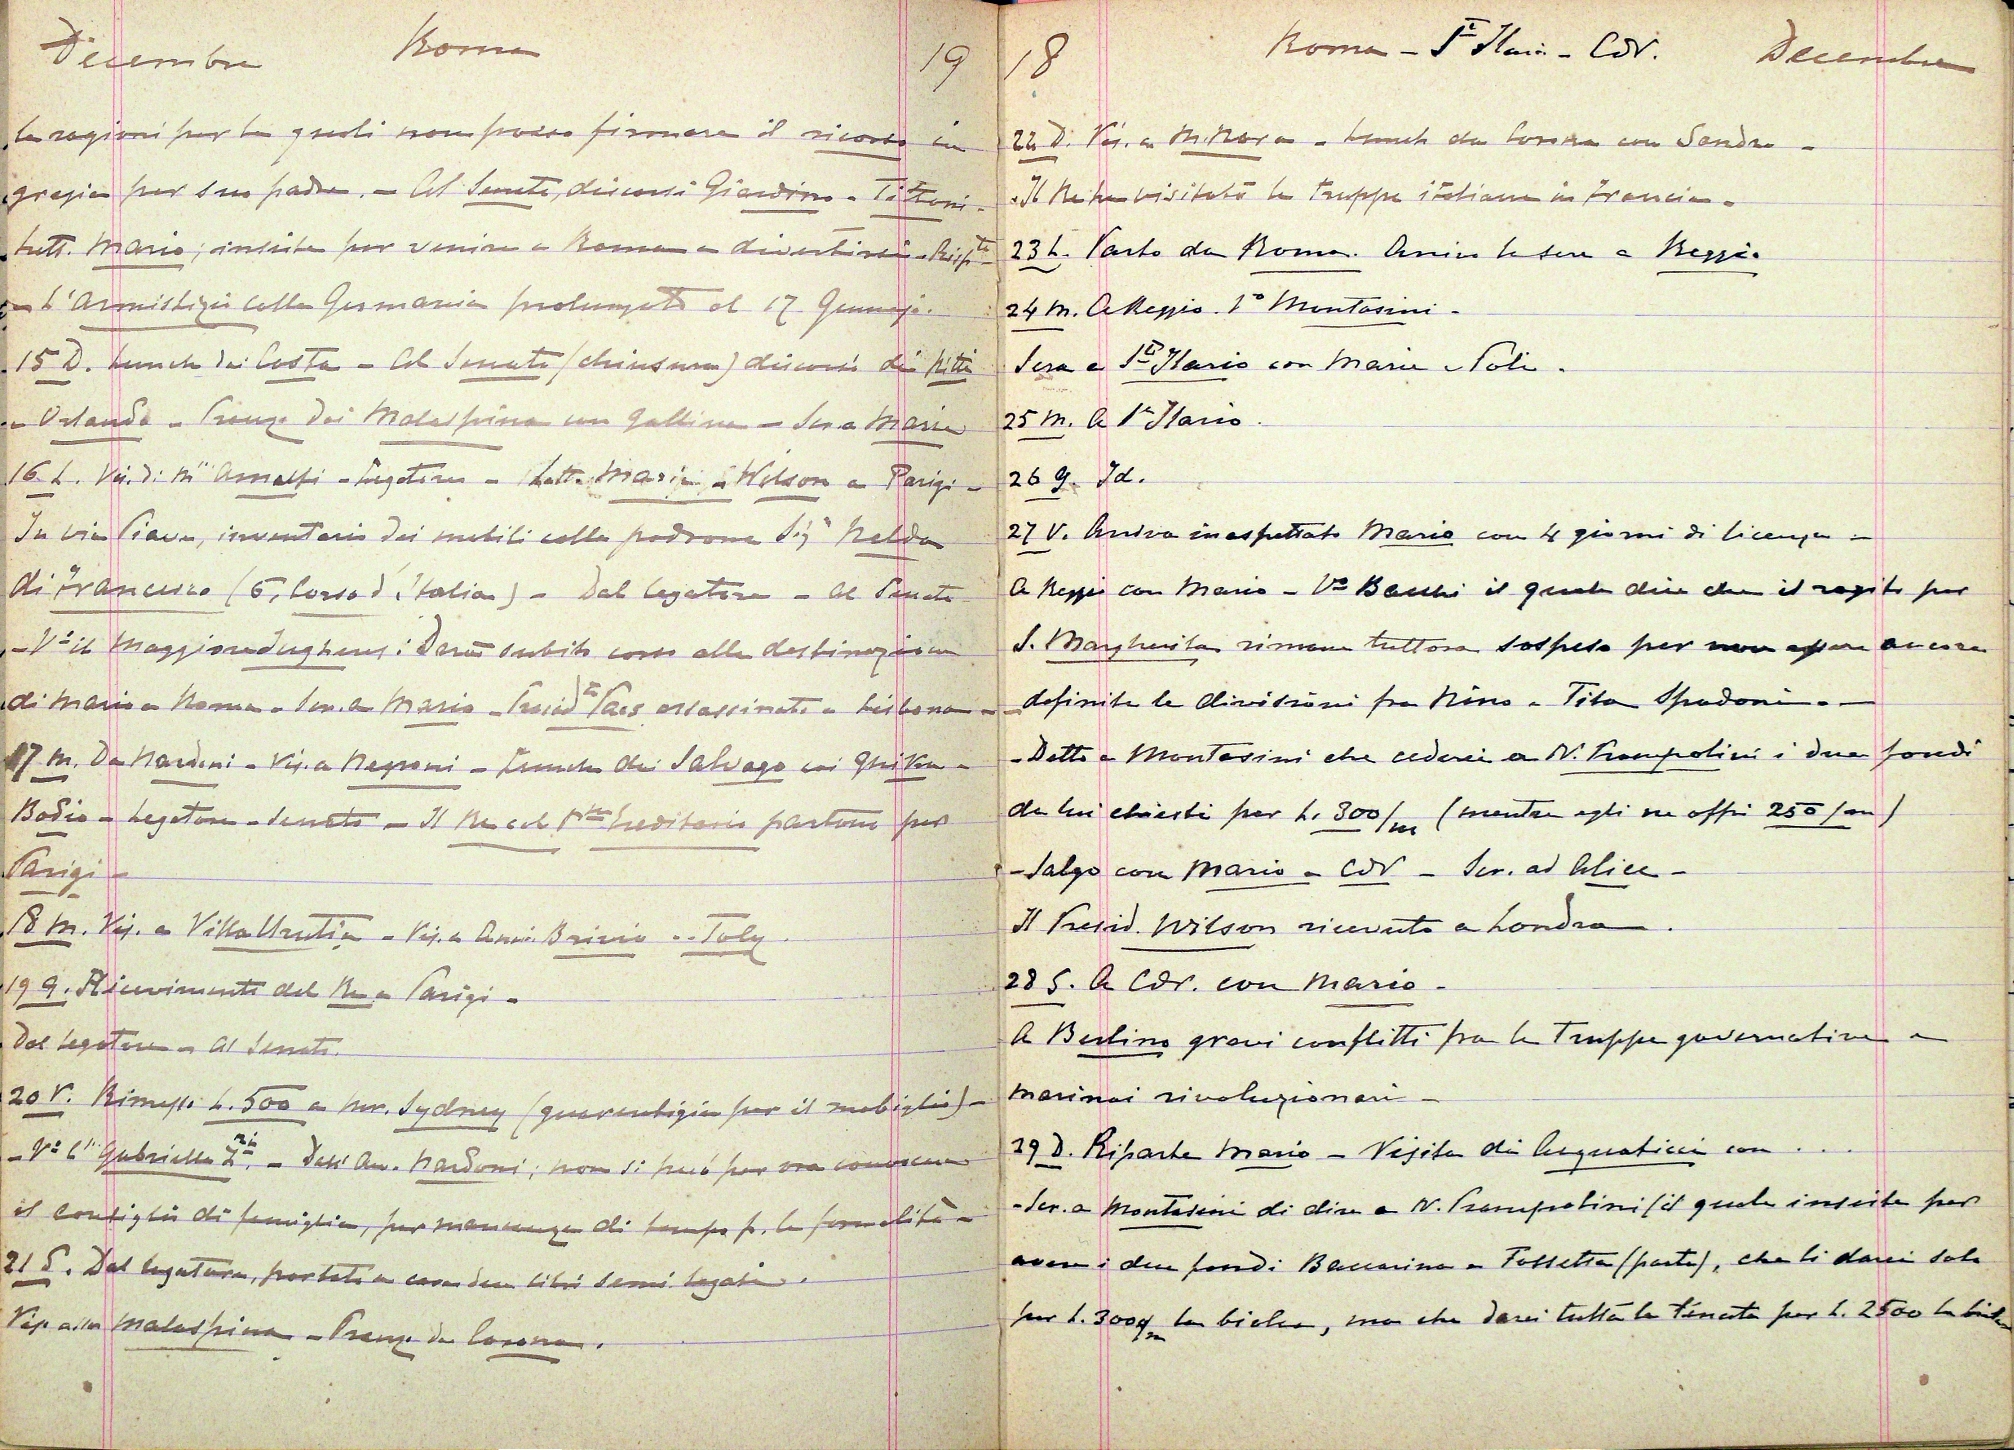 Decembre Roma 19
le ragioni per le quali non posso firmare il ricorso in
grazia per suo padre. - Al Senato, discorsi Giardino - Tittoni -
lett. Mario; insiste per venire a Roma a divertirsi - Rispte
- L'Armistizio colla Germania prolungato al 17 Gennajo.
15 D. Lunch dai Costa - Al Senato (chiusura) discorsi di Nitti
e Orlando - Pranzo dai Malaspina con Gallina - Scr. a Mario
16 L. Vis. di Mse Amalfi - Legatore - Lett. Mario - Wilson a Parigi -
In via Piave, inventario dei mobili colla padrona Siga Nelda
di Francesco (6, Corso d'Italia) - Dal legatore - Al Senato
- Vo il Maggiore : Darà subito corso alla destinazione
di Mario a Roma - Scr. a Mario - Presidte Paes assassinato a Lisbona -
17 M. Da Nardoni - Vis. a Negroni - Lunch dai Salvago coi
Bodio - Legatore - Senato - Il Re col Pe Ereditario partono per
Parigi -
18 M. Vis. a Villa Urrutia - Vis. a Brivio - Toly.
19 G. Ricevimenti del Re a Parigi -
Dal legatore - Al Senato.
20 V. Rimessi L. 500 a Mr. Sydney (guarentigia per il mobiglio) -
- Vo Gabriella - Dall'Avv. Nardoni; non si può per ora convocare
il consiglio di famiglia, per mancanza di tempo p. le formalità -
21 S. Dal legatore, portato a casa due libri semi legati.
Vis. alla Malaspina - Pranzo da Corsina.
18 Roma - St Ilario - CdV. Decembre
22 D. Vis. a M. Nora - Lunch da Corsina con Sandra -
- Il Re ha visitato le truppe italiane in Francia -
23 L. Parto da Roma. Arrivo la sera a Reggio
24 M. A Reggio. Vo Montasini -
Sera a St Ilario con Maria e Poli.
25 M. A St Ilario.
26 G. Id.
27 V. Arriva inaspettato Mario con 4 giorni di licenza -
A Reggio con Mario - Vo Bacchi il quale dice che il rogito per
S. Margherita rimane tuttora sospeso per non essere ancora
definite le divisioni fra Nino e Tita Spadoni -
- Detto a Montasini che cederei a N. Prampolini i due fondi
da lui chiesti per L. 300/m (mentre egli ne offrì 250/m)
- Salgo con Mario a CdV - Scr. ad Alice -
Il Presid. Wilson ricevuto a Londra.
28 S. A CdV. con Mario -
A Berlino gravi conflitti fra le truppe governative e
marinai rivoluzionari -
29 D. Riparte Mario - Visita di Acquaticci con ...
- Scr. a Montasini di dire a N. Prampolini (il quale insiste per
avere i due fondi Baccarina e Fossetta (parte), che li darei solo
per L. 3000 la biolca, ma che darei tutta la tenuta per L. 2500 la biolca